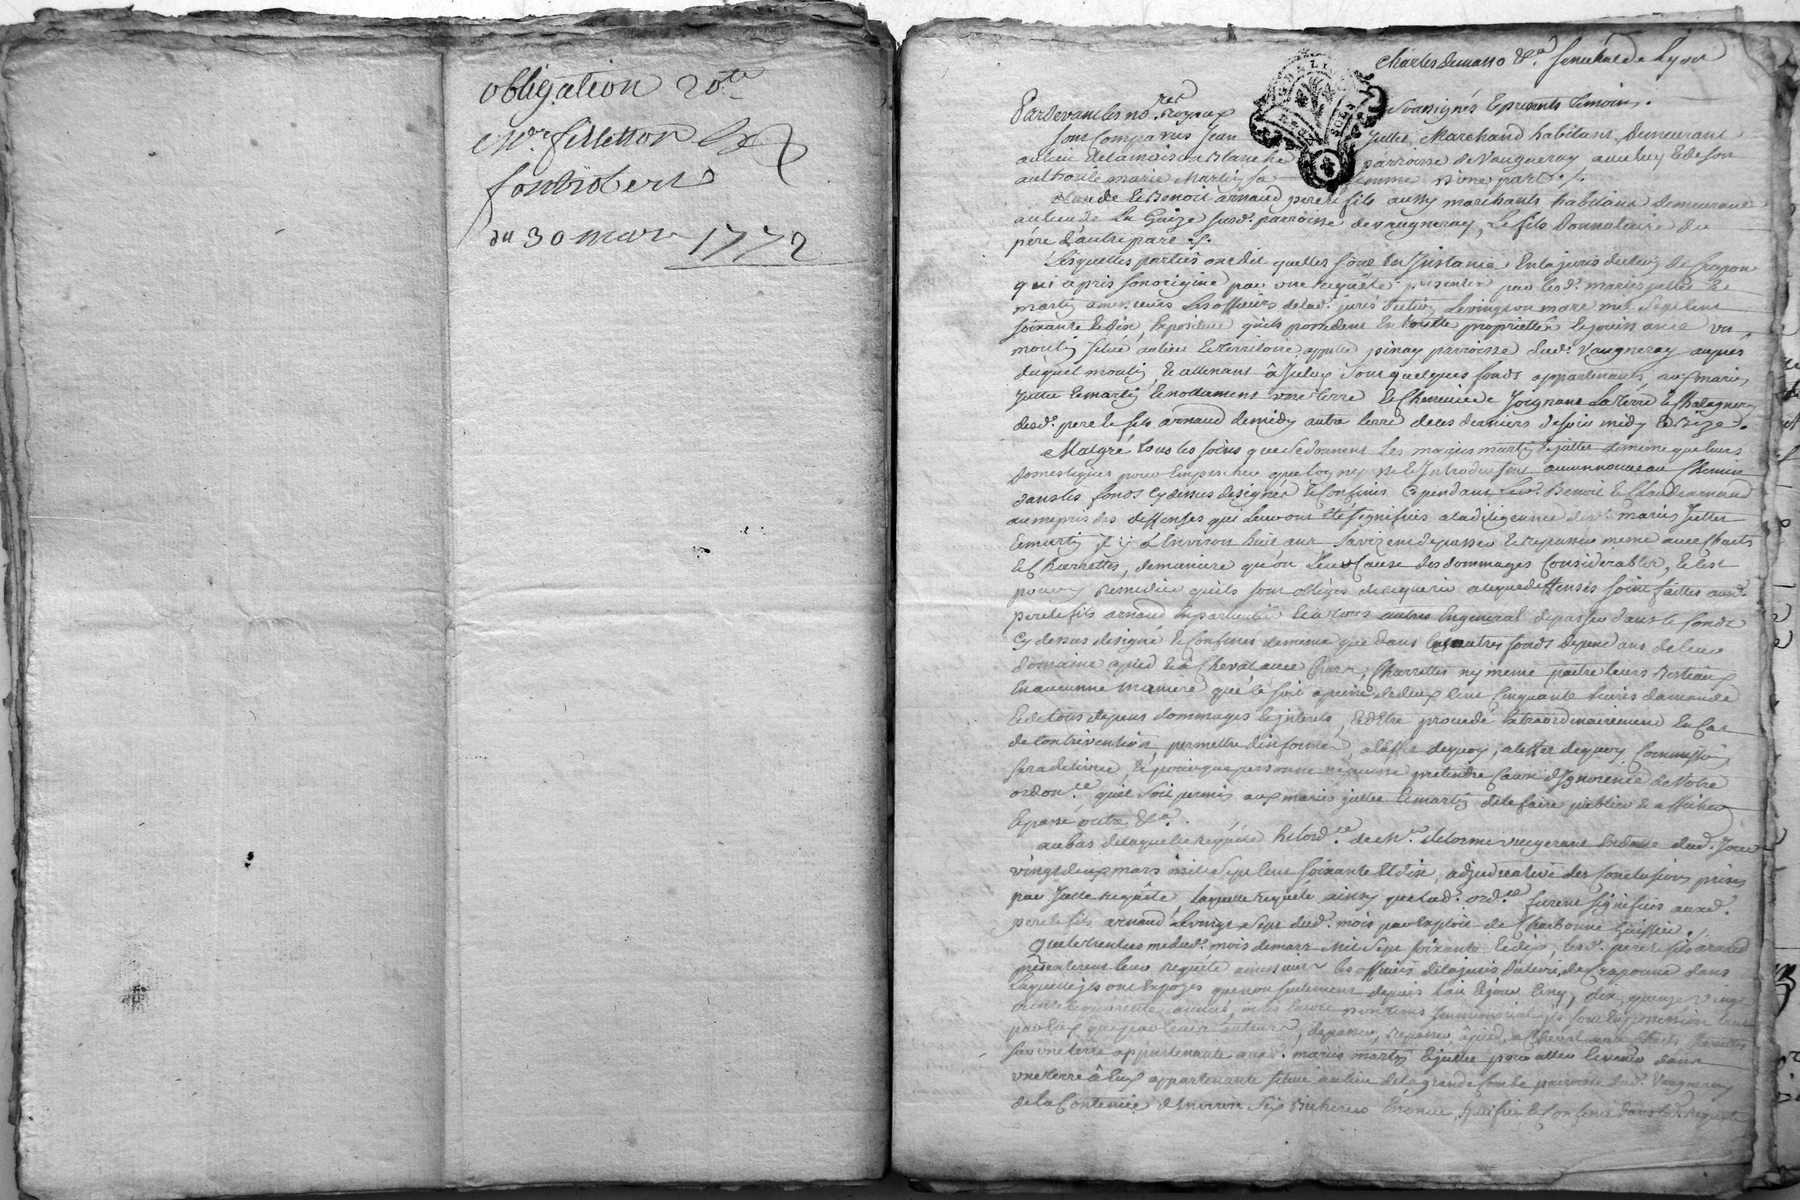 obligation 20te
Mr fillietton
fontrobert
du 30 mars 1772
Charles Demasso &a senechal de Lyon
Pardevant les nores royaux soussignés & presents temoins.
sont comparus Jean Juttet Marchand habitant Demeurant
au lieu de la maison Blanche parroisse de Vaugneray avec luy & de son
authorité marie Martin sa femme D'une part ./.
Claude & Benoit arnaud pere & fils aussy marchants habitant demeurant
au lieu de La Guize susd. parroisse de vaugneray, Le fils Donnataire du
pére d'autre part ./.
Lesquelles parties ont dit quelles sont En Instance En la jurisdiction de Crapone
qui a pris son origine par une requête presentée par lesd. mariés Juttet &
martin a messieurs les officiers de lad. jurisdiction Le vingt un mars mil sept cent
soixante & dix, Expositive quils possedent En toutte proprietté & jouissance un
moulin situé au lieu & territoire appellé pinay parroisse dud. Vaugneray auprés
duquel moulin & attenant à Iceluy sont quelques fonds appartenants aux mariés
Juttet & martin & nottamment une terre & Cheneviere Joignant La terre & Chatagneray
desd. pere & fils arnaud de midy autre terre de ces derniers de soir midy & Bize.
Malgré tous les soins que se donnent Les mariés martin & juttet de meme que leurs
domestiques pour Empescher que lon ne passe & Introduise aucun nouveau Chemin
dans les fonds Cy dessus designés & Confinés Cependant Lesd. Benoit & Claude arnaud
au mepris des deffenses qui leur ont Eté signifiés a la diligence desd. mariés Juttet
& martin Il y a Environ huit ans s'avizent de passer & repasser meme avec Chars
& Charrettes, de maniere qu'on leur Cause des dommages Considérables, & C'est
pour y Remedier quils sont obligés de requerir a ce que deffenses soint faittes auxd.
pere & fils arnaud En particulier & a tous autres En general de passer dans le fonds
Cy dessus designé & Confiné de meme que dans les autres fonds dependans de leur
domaine a pied & à Cheval avec Chars, Charrettes ny meme paitre leurs Bestiaux
En aucunne maniere que ce soit a peine de deux Cent Cinquante Livres d'amande
& de tous depens dommages & Interets, & d'Etre procedé Extraordinairement En Cas
de Contrevention, permettre d'informer, a l'effet de quoy, a l'effet de quoy Commission
sera delivrée, & pour que personne ne puisse pretendre Cause d'Ignorence de Votre
ordonce quil soit permis aux mariés juttet & martin de le faire publier & afficher
& passe outre &a.
au bas de laquelle requête Est l'ordce de Mre delorme vicegerant En datte dud. Jour
vingt deux mars mil sept Cent soixante & dix, adjudicative des Conclusions prises
par Jcelle requête, laquelle requête ainsy que lad. ordce furent signifiés auxd.
pere & fils arnaud Le vingt sept dud. mois par Exploit de Charbonne huissier ./.
Que le trentieme dud. mois de mars Mil Sept soixante & dix, lesd. pere & fils arnaud
presenterent leur requête a messieurs les officiers de la jurisdiction de Craponne dans
laquelle ils ont Exposés que non seulement depuis l'an & jour Cinq, dix, quinze vingt
trente & quarante années, mais Encore de tems Immemorial ils sont En possession tant
par Eux que par leurs auteurs, de passer, repasser, à pied, à Cheval avec Chars Charrettes
sur une terre appartenante auxd. mariés martin & juttet pour aller & venir dans
une terre à Eux appartenante située au lieu de la grande Combe parroisse dud. Vaugneray
de la Contenüe d'Environ Six Bicherées Enoncée, Specifiée & Confinée dans lad. Requête